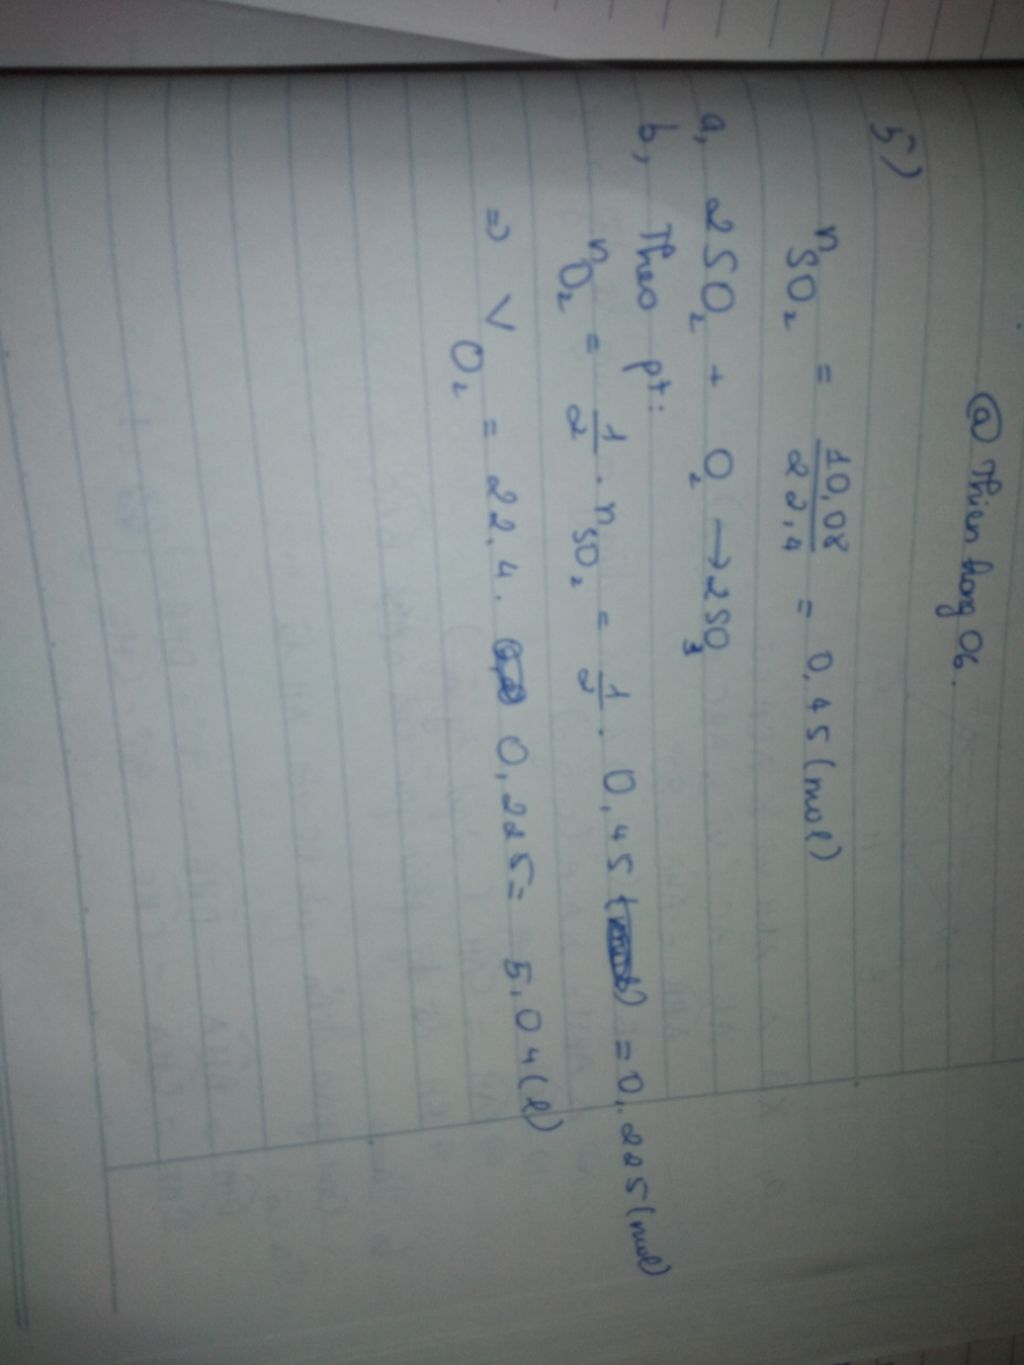 @ Thienhong06.
5)
n SO₂ = 10,08 / 22,4 = 0,45 (mol)
a, 2SO₂ + O₂ → 2SO₃
b, Theo pt:
n O₂ = 1/2 . n SO₂ = 1/2 . 0,45 = 0,225 (mol)
=> V O₂ = 22,4 . 0,225 = 5,04 (l)